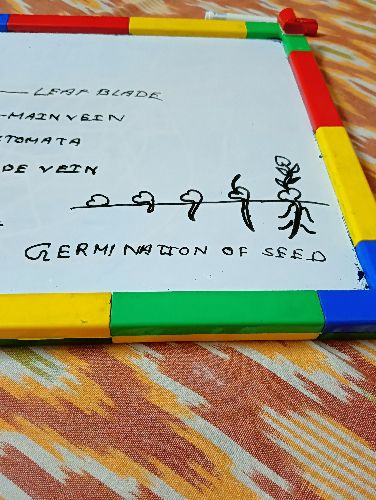 LEAF BLADE
MAIN VEIN
TOMATA
DE VEIN
GERMINATION OF SEED